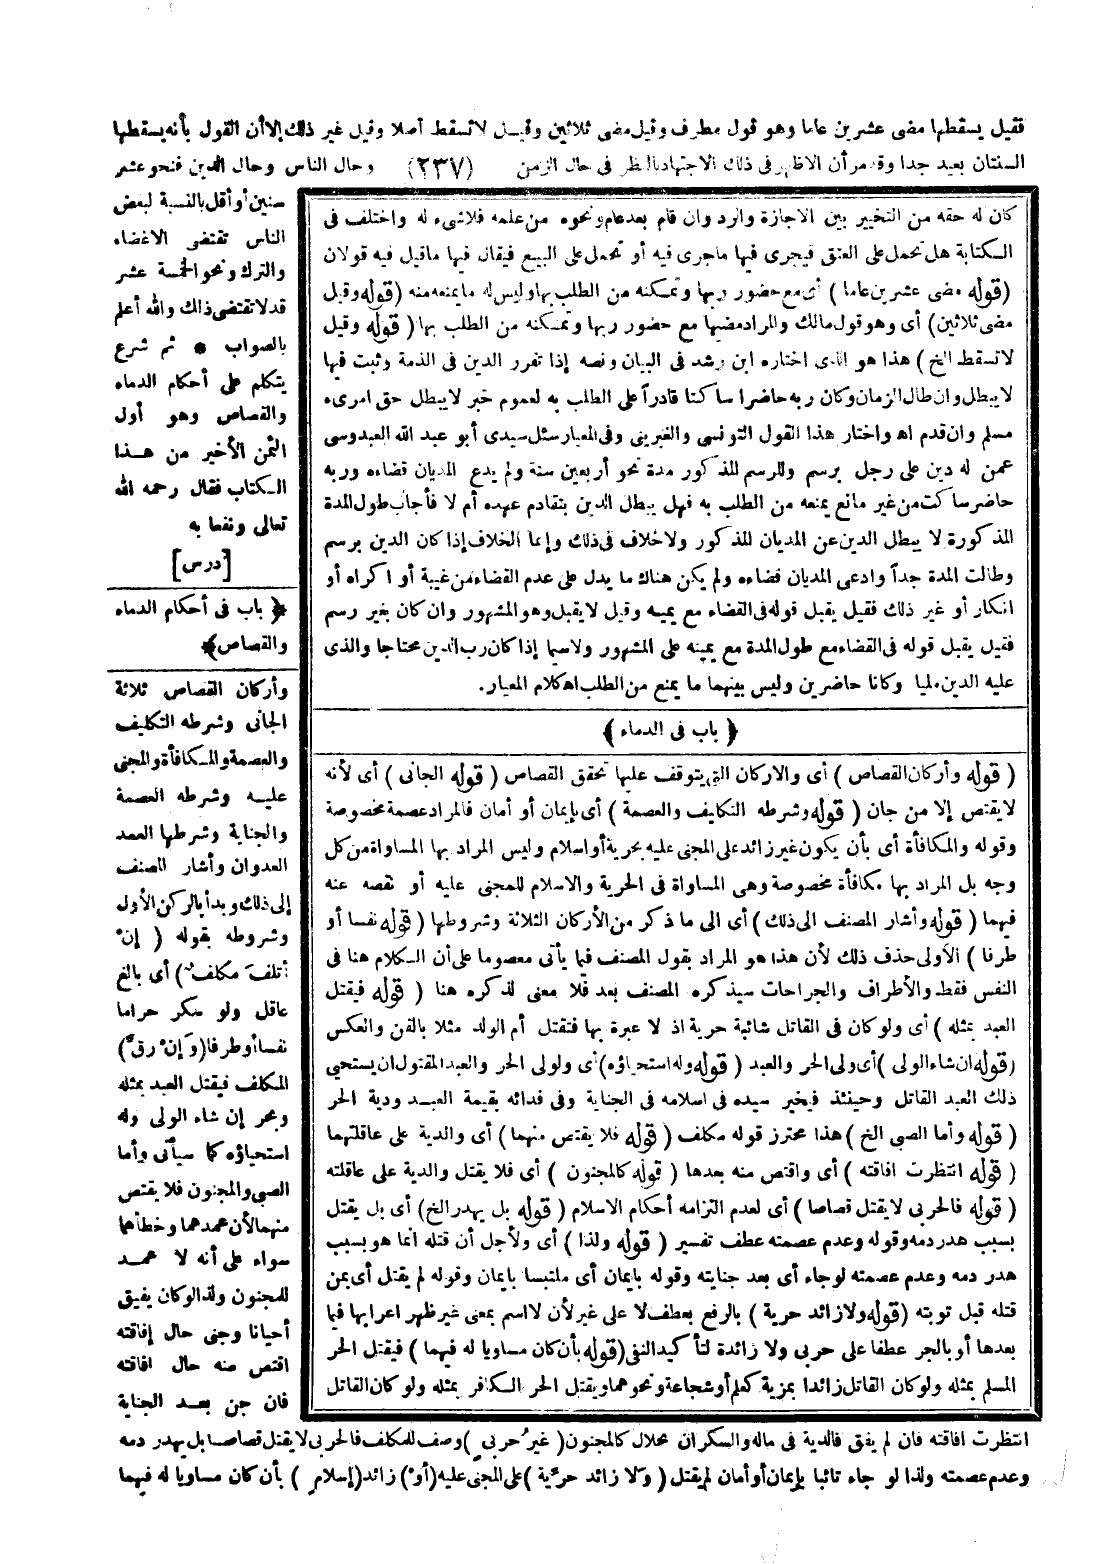 فقيل يسقطها مضى عشرين عاما وهو قول مطرف وقيل مضى ثلاثين وقيل لا تسقط أصلا وقيل غير ذلك إلا أن القول بأنه يسقطها
السنتان بعيد جدا وقد مر أن الاظهر فى ذلك الاجتهاد بالنظر فى حال الزمن (٢٣٧) وحال الناس وحال الدين فنحو عشر
سنين أو أقل بالنسبة لبعض
الناس تقتضى الاغضاء
والترك ونحو الخمسة عشر
قد لا تقتضى ذلك والله أعلم
بالصواب * ثم شرع
يتكلم على أحكام الدماء
والقصاص وهو أول
الثمن الأخير من هذا
الكتاب فقال رحمه الله
تعالى ونفعا به
[درس]
﴿ باب فى أحكام الدماء
والقصاص﴾
وأركان القصاص ثلاثة
الجانى وشرطه التكليف
والعصمة والمكافأة والمجنى
عليه وشرطه العصمة
والجناية وشرطها العمد
العدوان وأشار المصنف
إلى ذلك وبدأ بالركن الأول
وشروطه بقوله ( إن
أتلف مكلف ) أى بالغ
عاقل ولو سكر حراما
نفسا أو طرفا (وإن رق)
المكلف فيقتل العبد بمثله
وبحر إن شاء الولى وله
استحياؤه كما سيأتى وأما
الصبى والمجنون فلا يقتص
منهما لأن عمدهما وخطأهما
سواء على أنه لا عمد
للمجنون ولذا لو كان يفيق
أحيانا وجنى حال إفاقته
اقتص منه حال افاقته
فان جن بعد الجناية
كان له حقه من التخيير بين الاجازة والرد وان قام بعد عام ونحوه من علمه فلا شىء له واختلف فى
الكتابة هل تحمل على العتق فيجرى فيها ماجرى فيه أو تحمل على البيع فيقال فيها ماقيل فيه قولان
(قوله مضى عشرين عاما ) أى مع حضور ربها وتمكنه من الطلب بها وليس له ما يمنعه منه (قوله وقيل
مضى ثلاثين) أى وهو قول مالك والمراد مضيها مع حضور ربها وتمكنه من الطلب بها ( قوله وقيل
لا تسقط الخ ) هذا هو الذى اختاره ابن رشد فى البيان ونصه إذا تقرر الدين فى الذمة وثبت فيها
لا يبطل وان طال الزمان وكان ربه حاضرا ساكتا قادراً على الطلب به لعموم خبر لا يبطل حق امرىء
مسلم وان قدم اه واختار هذا القول التونسى والغبرينى وفى المعيار سئل سيدى أبو عبد الله العبدوسى
عمن له دين على رجل برسم وللرسم المذكور مدة نحو أربعين سنة ولم يدع المديان قضاءه وربه
حاضر ساكت من غير مانع يمنعه من الطلب به فهل يبطل الدين بتقادم عهده أم لا فأجاب طول المدة
المذكورة لا يبطل الدين عن المديان المذكور ولا خلاف فى ذلك وإنما الخلاف إذا كان الدين برسم
وطالت المدة جداً وادعى المديان قضاءه ولم يكن هناك ما يدل على عدم القضاء من غيبة أو اكراه أو
انكار أو غير ذلك فقيل يقبل قوله فى القضاء مع يمينه وقيل لا يقبل وهو المشهور وان كان بغير رسم
فقيل يقبل قوله فى القضاء مع طول المدة مع يمينه على المشهور ولا سيما إذا كان رب الدين محتاجا والذى
عليه الدين مليا وكانا حاضرين وليس بينهما ما يمنع من الطلب اه كلام المعيار.
﴿ باب فى الدماء ﴾
( قوله وأركان القصاص ) أى والاركان التى يتوقف عليها تحقق القصاص ( قوله الجانى ) أى لأنه
لا يقتص إلا من جان ( قوله وشرطه التكليف والعصمة ) أى بإيمان أو أمان فالمراد عصمة مخصوصة
وقوله والمكافأة أى بأن يكون غير زائد على المجنى عليه بحرية أو اسلام وليس المراد بها المساواة من كل
وجه بل المراد بها مكافأة مخصوصة وهى المساواة فى الحرية والاسلام للمجنى عليه أو نقصه عنه
فيهما ( قوله وأشار المصنف الى ذلك ) أى الى ما ذكر من الأركان الثلاثة وشروطها ( قوله نفسا أو
طرفا ) الأولى حذف ذلك لأن هذا هو المراد بقول المصنف فيما يأتى معصوما على أن الكلام هنا فى
النفس فقط والأطراف والجراحات سيذكره المصنف بعد فلا معنى لذكره هنا ( قوله فيقتل
العبد بمثله ) أى ولو كان فى القاتل شائبة حرية اذ لا عبرة بها فتقتل أم الولد مثلا بالقن والعكس
(قوله ان شاء الولى ) أى ولى الحر والعبد ( قوله وله استحياؤه) أى ولولى الحر والعبد المقتول ان يستحيى
ذلك العبد القاتل وحينئذ فيخير سيده فى اسلامه فى الجناية وفى فدائه بقيمة العبد ودية الحر
( قوله وأما الصبى الخ ) هذا محترز قوله مكلف ( قوله فلا يقتص منهما ) أى والدية على عاقلتهما
( قوله انتظرت افاقته ) أى واقتص منه بعدها ( قوله كالمجنون ) أى فلا يقتل والدية على عاقلته
( قوله فالحربى لا يقتل قصاصا ) أى لعدم التزامه أحكام الاسلام ( قوله بل يهدر الخ) أى بل يقتل
بسبب هدر دمه وقوله وعدم عصمته عطف تفسير ( قوله ولذا ) أى ولأجل أن قتله انما هو بسبب
هدر دمه وعدم عصمته لو جاء أى بعد جنايته وقوله بايمان أى ملتبسا بايمان وقوله لم يقتل أى بمن
قتله قبل توبته (قوله ولا زائد حرية ) بالرفع بعطف لا على غير لأن لا اسم بمعنى غير ظهر اعرابها فيما
بعدها أو بالجر عطفا على حربى ولا زائدة لتأكيد النفى (قوله بأن كان مساويا له فيهما ) فيقتل الحر
المسلم بمثله ولو كان القاتل زائدا بمزية كعلم أو شجاعة ونحوهما ويقتل الحر الكافر بمثله ولو كان القاتل
انتظرت افاقته فان لم يفق فالدية فى ماله والسكران بحلال كالمجنون ( غير حربى ) وصف للمكلف فالحربى لا يقتل قصاصا بل يهدر دمه
وعدم عصمته ولذا لو جاء تائبا بإيمان أو أمان لم يقتل ( ولا زائد حرية ) على المجنى عليه (أو) زائد (إسلام ) بأن كان مساويا له فيهما